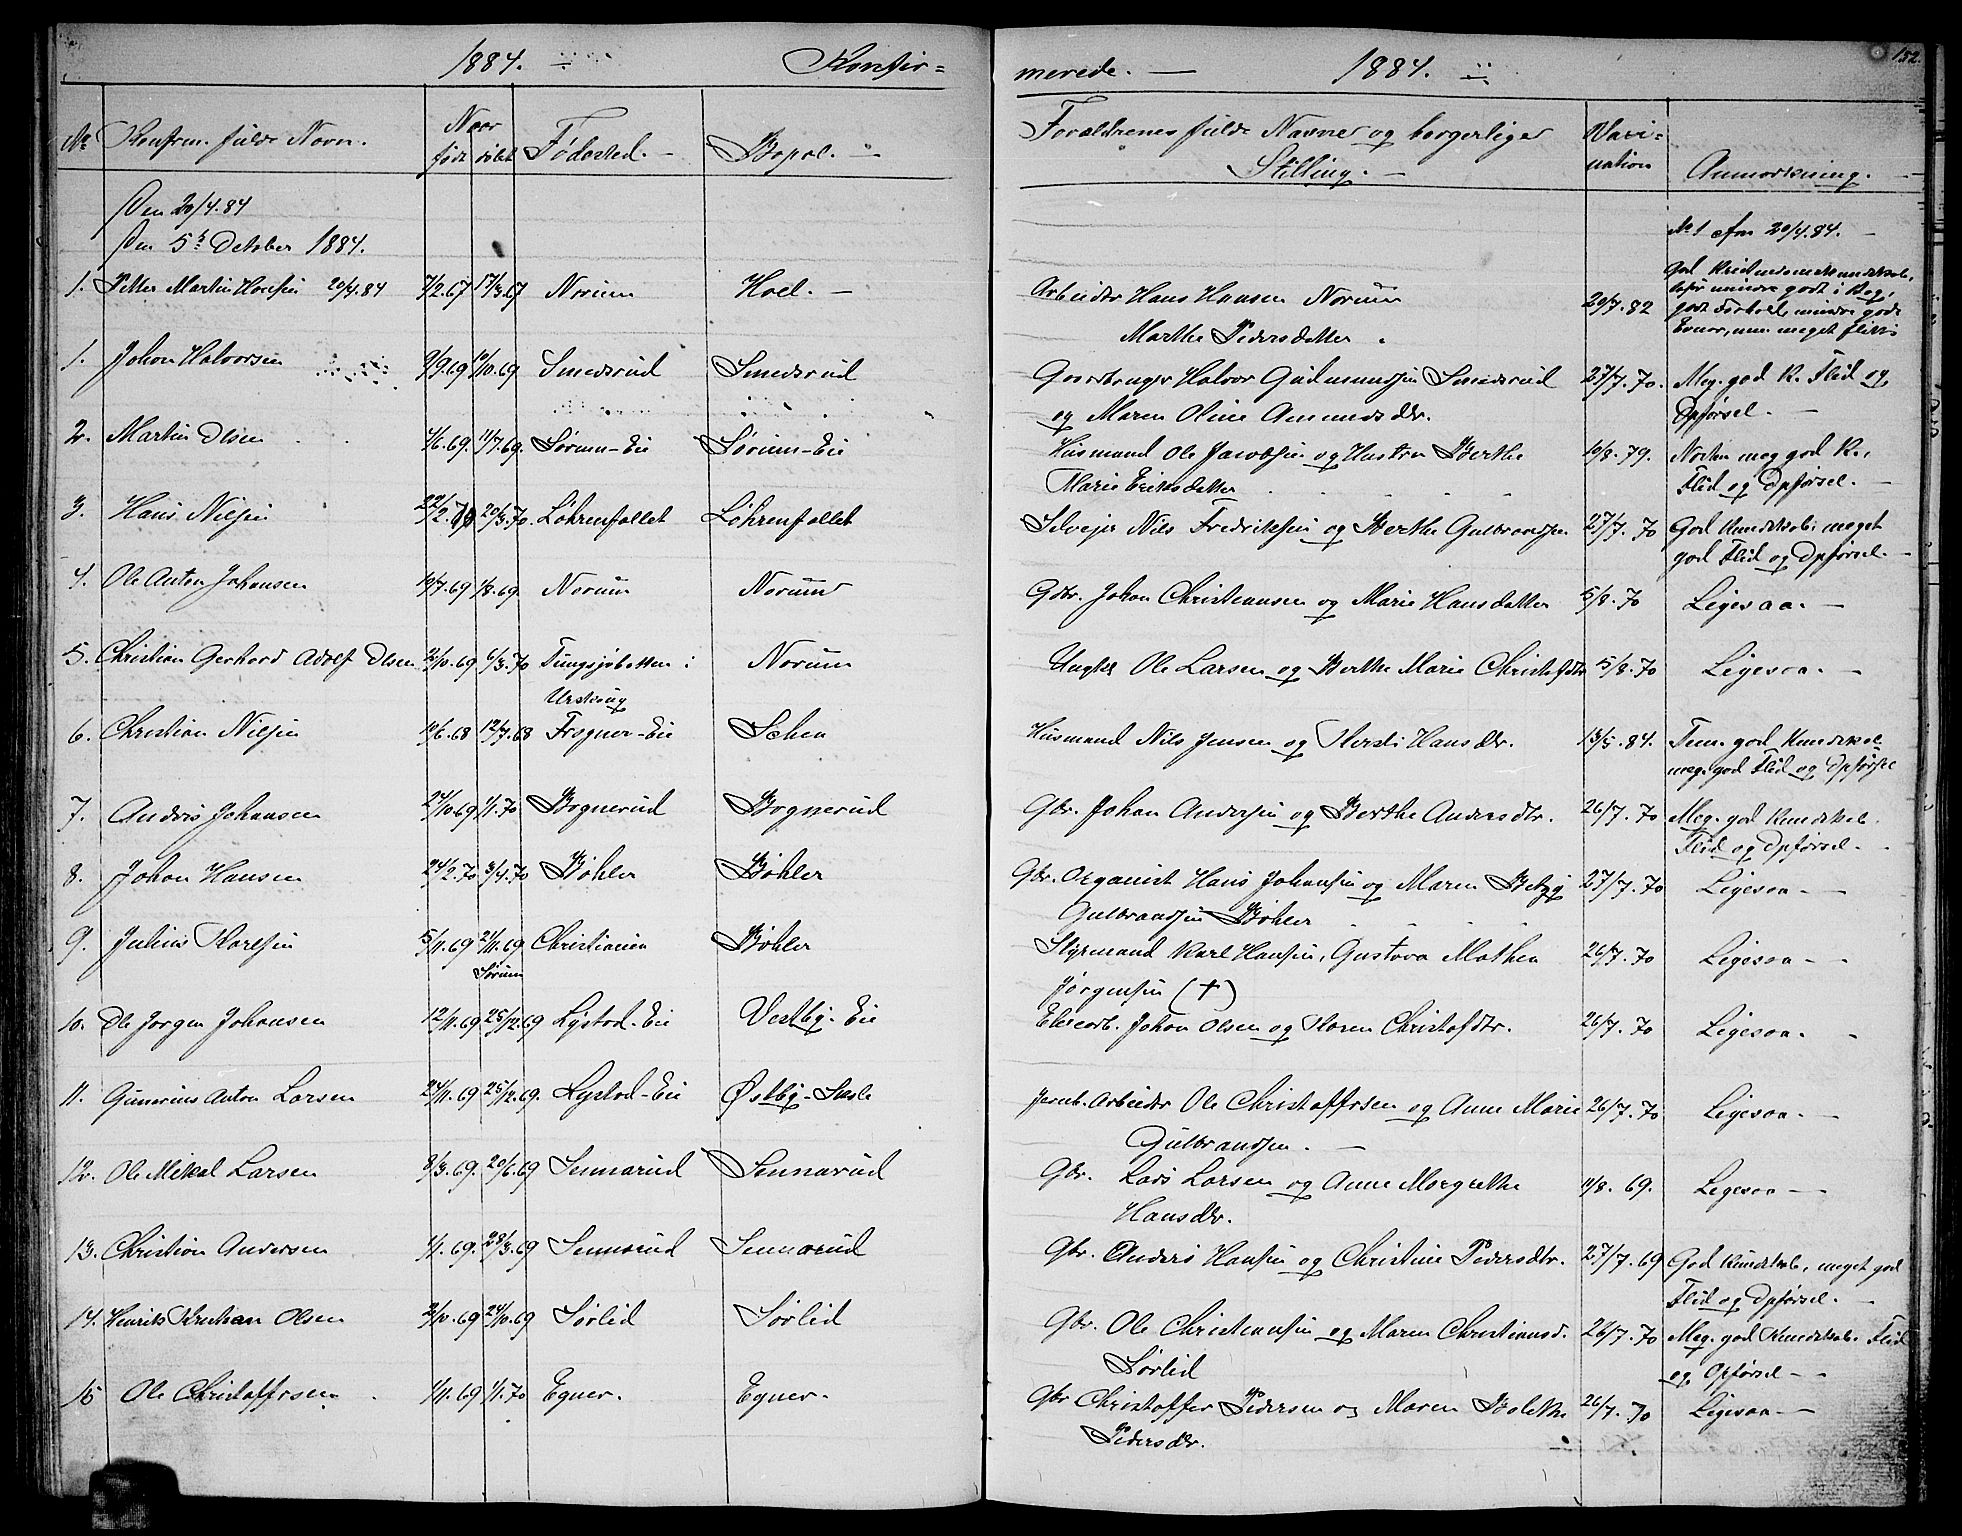 1884. Konfir=
merede. — 1884. 152.
No Konfirm. fulde Navn. Naar født døbt Fødested. — Bopæl. —
Forældrenes fulde Navne og borgerlige Stilling. — Vaccination Anmærkning. —
Den 20/4.84 No 1 af 20/4.84. —
Den 5te October 1884.
1. Petter Martin Hansen 20/4.84 7/2.67 17/3.67 Norum Hoel. — Arbeider Hans Hansen Norum 20/7.82 God Kristendomskundskab,
Marthe Pedersdatter mindre godt i Bog,
godt Forhold, mindre gode
Evner, men meget flittig
1. Johan Halvorsen 9/9.69 10/10.69 Smedsrud Smedsrud Gaardbruger Halvor Gudmundsen Smedsrud 27/7.70. Meg. god K. Flid og
og Maren Oline Amundsdtr. Opførsel. —
2. Martin Olsen 4/6.69. 11/7.69. Sørum-Eie Sørum-Eie Husmand Ole Jacobsen og Hustru Berthe 10/8.79. Næsten meg god K.,
Marie Eriksdatter Flid og Opførsel. —
3. Hans Nilsen 22/2.70 20/3.70. Løhrenfallet Løhrenfallet Selvejer Nils Fredriksen og Berthe Gulbrandsen 27/7.70 God Kundskab, meget
god Flid og Opførsel. —
4. Ole Anton Johansen 10/7.69 1/8.69. Norum Norum Gdbr. Johan Christiansen og Marie Hansdatter 5/8.70 Ligesaa. —
5. Christian Gerhard Adolf Olsen 2/10.69 6/3.70 Tungsjøbotten i Norum Ungkr Ole Larsen og Berthe Marie Christofdtr 5/8.70 Ligesaa. —
Urskoug
6. Christian Nilsen 10/6.68 12/7.68 Frogner-Eie Schea Husmand Nils Jensen og Kersti Hansdtr. 13/5.84. Tem. god Kundskab
meg. god Flid og Opførsel
7. Andrs Johansen 24/10.69 1/1.70 Bognerud Bognerud Gbr. Johan Andersen og Berthe Andersdtr. 26/7.70 Meg. god Kundskab.
Flid og Opførsel. —
8. Johan Hansen 24/2.70 3/4.70 Bøhler Bøhler Gbr. Organist Hans Johansen og Maren Betzy 27/7.70 Ligesaa —
Gulbrandsen Bøhler
9. Julius Karlsen 5/11.69 21/11.69 Christiania Bøhler Styrmand Karl Hansen, Gustava Mathea 26/7.70 Ligesaa —
Sørum Jørgensen (†)
10. Ole Jørgen Johansen 12/11.69 25/12.69 Lystad-Eie Vestby-Eie Johan Olsen og Karen Christofdtr. 26/7.70 Ligesaa. —
11. Gunerius Anton Larsen 24/11.69 25/12.69. Lystad-Eie Østby-Hasle Jernb. Arbeider Ole Christoffersen og Anne Marie 26/7.70 Ligesaa. —
Gulbrandsen. —
12. Ole Mikal Larsen 8/3.69. 20/6.69 Sennerud Sennerud Gbr. Lars Larsen og Anne Margrethe 11/8.69. Ligesaa —
Hansdtr.
13. Christian Andersen 1/1.69. 28/3.69 Sennerud Sennerud Gbr. Anders Hansen og Christine Pedersdtr. 27/7.69 God Kundskab, meget god
Flid og Opførsel. —
14. Henrik Kristian Olsen 2/10.69 24/10.69 Sørlid Sørlid Gbr. Ole Christiansen og Maren Christiansd. 26/7.70 Meg. god Kundskab. Flid
Sørlid og Opførsel —
15 Ole Christoffersen 1/11.69 1/1.70 Egner. Egner. Gbr Christoffer Pedersen og Maren Bolette 26/7.70 Ligesaa —
Pedersdtr.